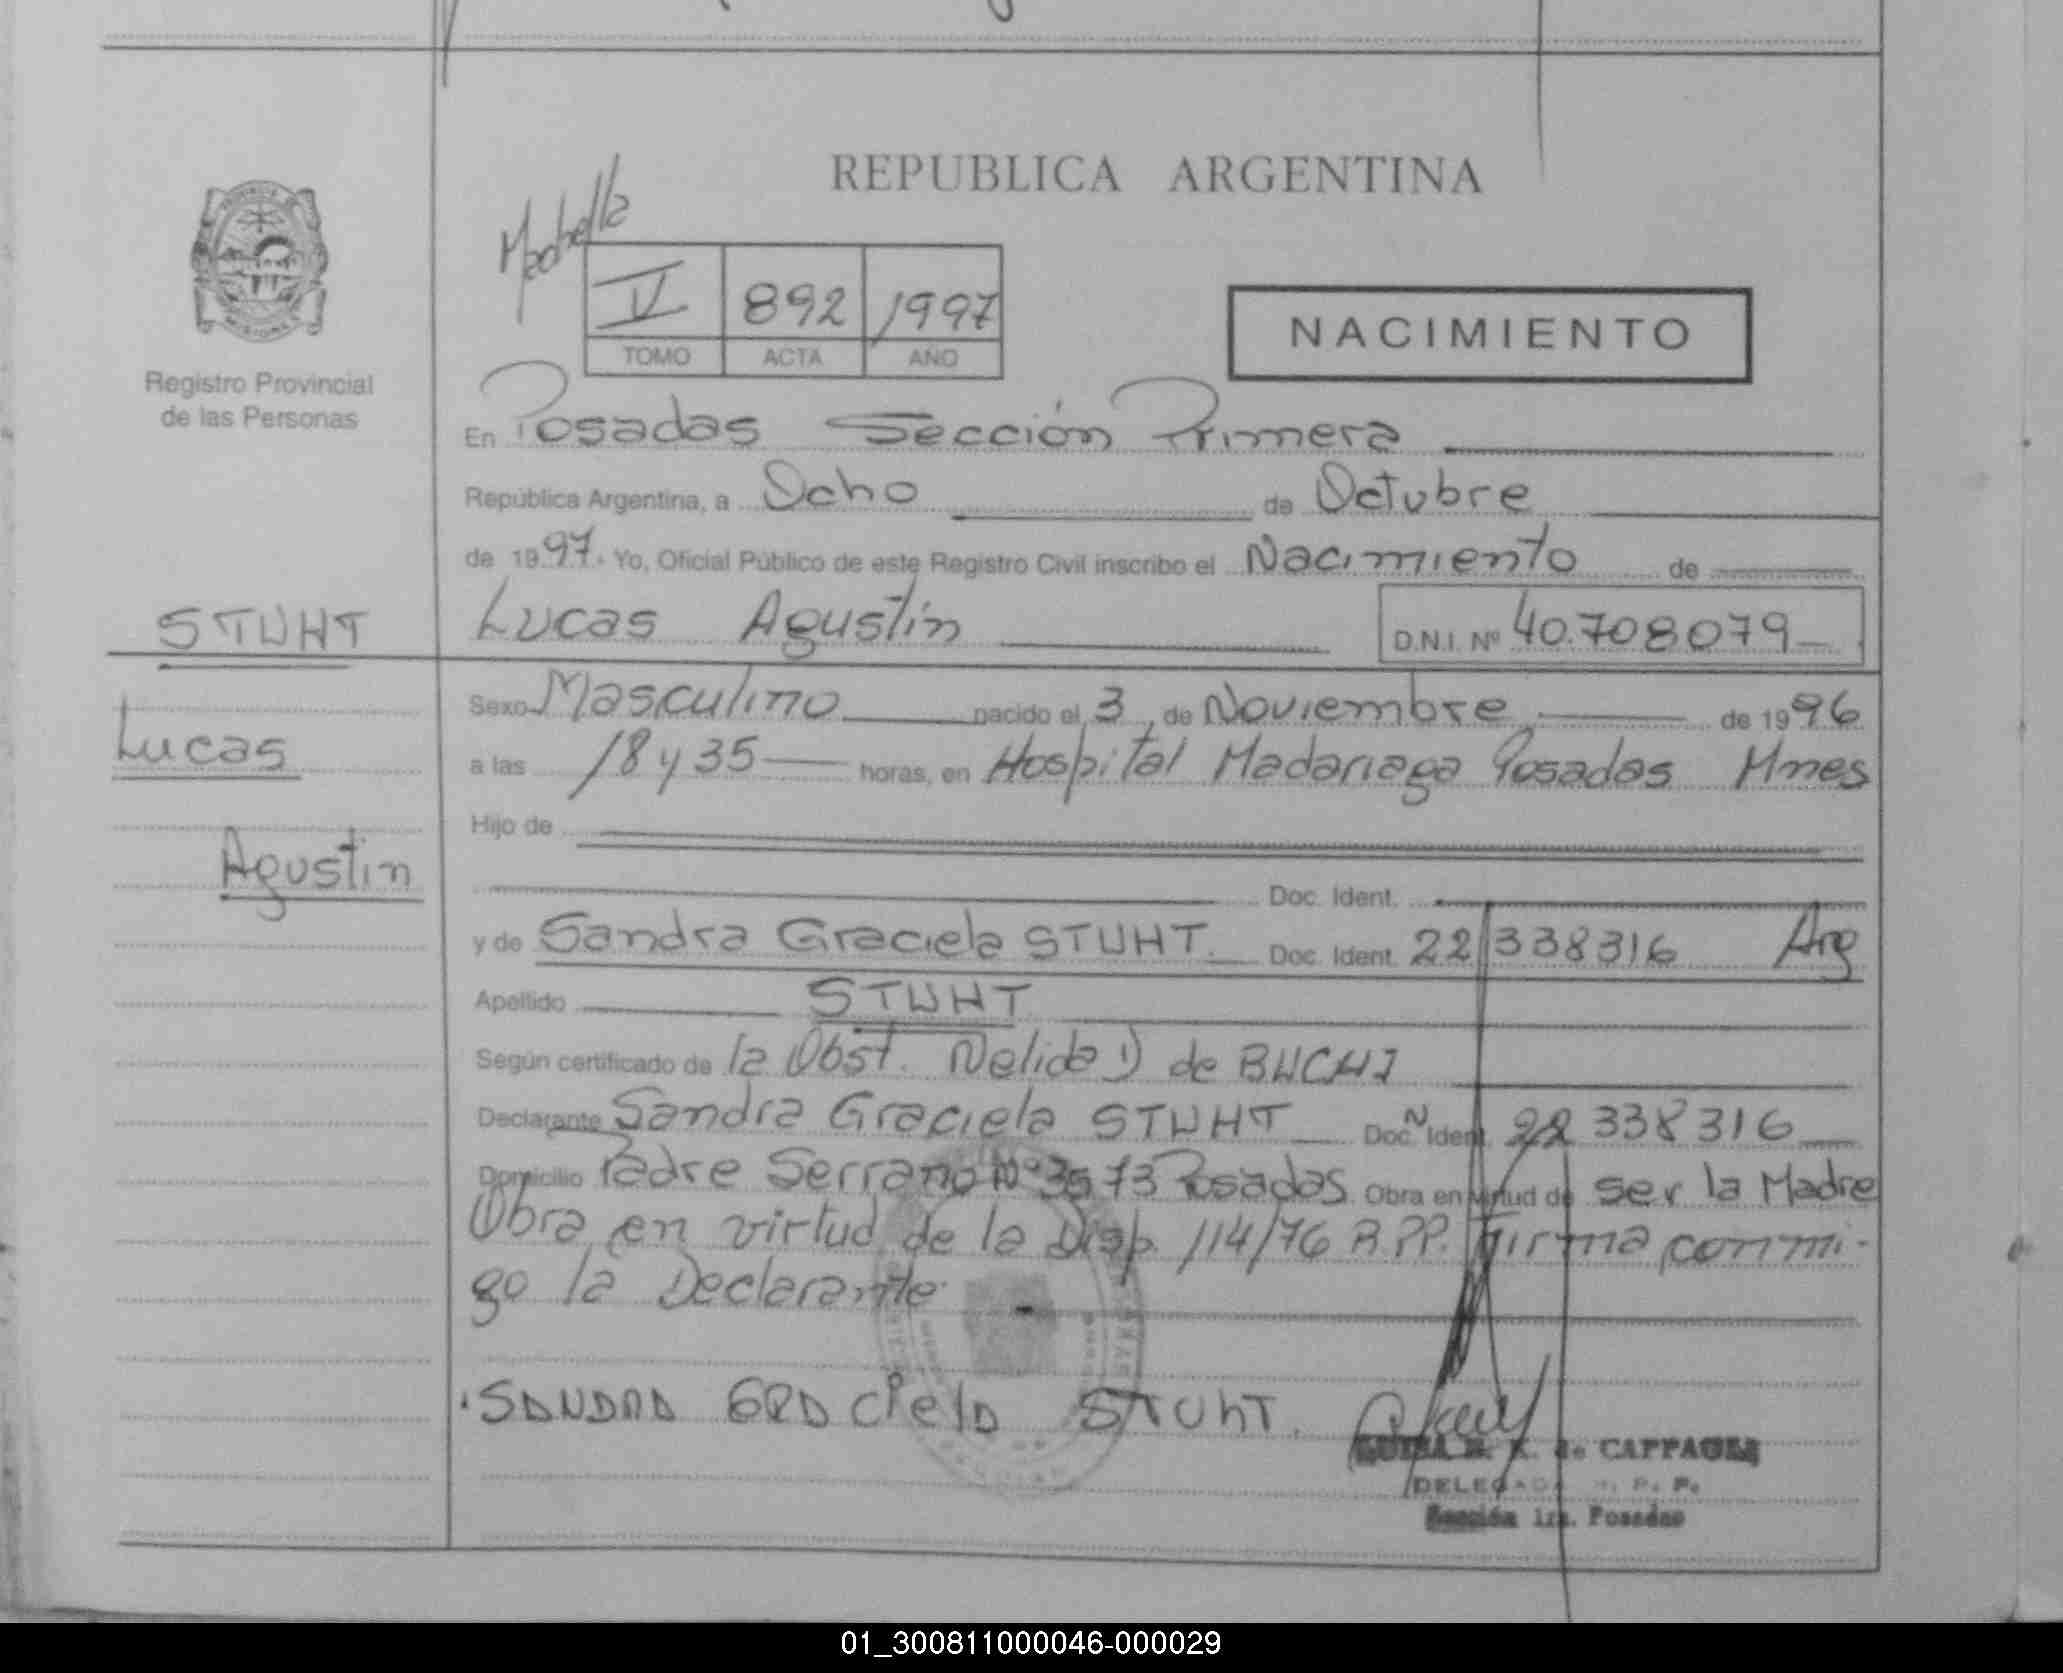 REPUBLICA ARGENTINA
V 892 1997
TOMO ACTA AÑO
NACIMIENTO
Registro Provincial
de las Personas
En Posadas Sección Primera
República Argentina, a Ocho de Octubre
de 1997. Yo, Oficial Público de este Registro Civil inscribo el Nacimiento de
STUHT
Lucas Agustín
D.N.I. Nº 40.708079
Lucas
Agustin
Sexo Masculino nacido el 3 de Noviembre de 1996
a las 18 y 35 horas, en Hospital Madariaga Posadas Mnes
Hijo de
Doc. Ident.
y de Sandra Graciela STUHT. Doc. Ident. 22 338316 Arg
Apellido STUHT
Según certificado de la Obst. Nelida D de
Declarante Sandra Graciela STUHT Doc. Ident. 22 338316
Domicilio Padre Serrano Nº 3573 Posadas Obra en virtud de ser la Madre
Obra en virtud de la Disp. 114/76 R.P.P. Firma conmi-
go la Declarante
SANDRA GRACielA STUhT.
de CAPPAGLI
DELEGADA R. P. P.
Sección 1ra. Posadas
01_300811000046-000029